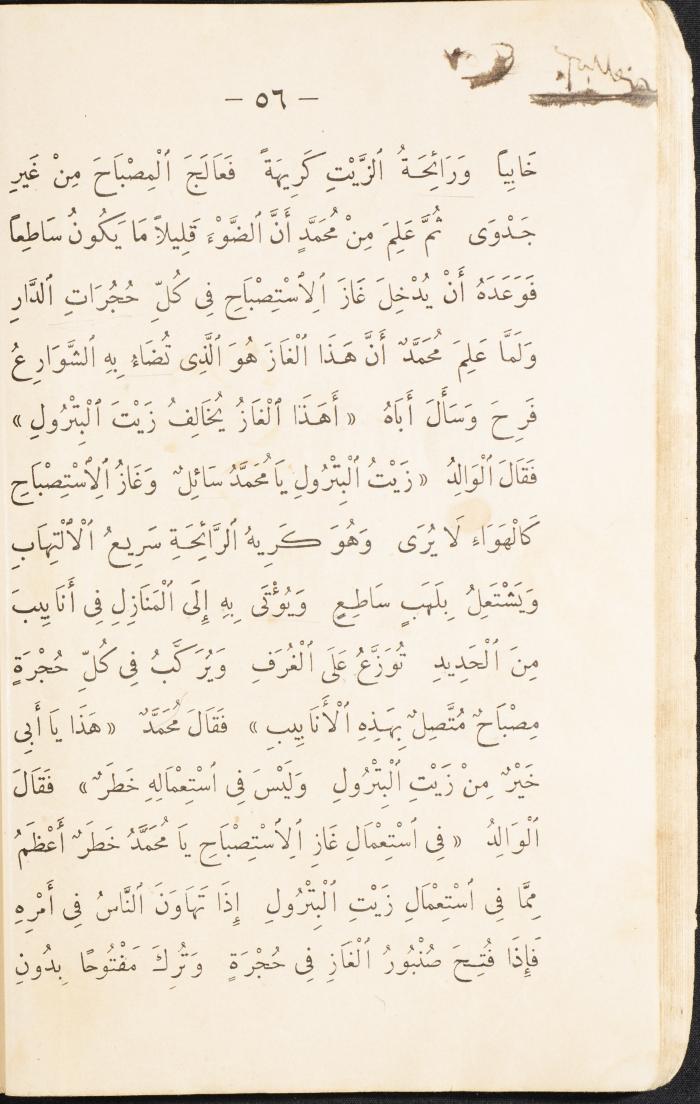 — ٥٦ —
خَابِياً وَرَائِحَةُ ٱلزَّيْتِ كَرِيهَةً فَعَالَجَ ٱلْمِصْبَاحَ مِنْ غَيرِ
جَدْوَى ثُمَّ عَلِمَ مِنْ مُحَمَّدٍ أَنَّ ٱلضَّوْءَ قَلِيلاً مَا يَكُونُ سَاطِعاً
فَوَعَدَهُ أَنْ يُدْخِلَ غَازَ ٱلِٱسْتِصْبَاحِ فِى كُلِّ حُجُرَاتِ ٱلدَّارِ
وَلَمَّا عَلِمَ مُحَمَّدٌ أَنَّ هَذَا ٱلْغَازَ هُوَ ٱلَّذِى تُضَاءُ بِهِ ٱلشَّوَارِعُ
فَرِحَ وَسَأَلَ أَبَاهُ «أَهَذَا ٱلْغَازُ يُخَالِفُ زَيْتَ ٱلْبِتْرُولِ»
فَقَالَ ٱلْوَالِدُ «زَيْتُ ٱلْبِتْرُولِ يَا مُحَمَّدُ سَائِلٌ وَغَازُ ٱلِٱسْتِصْبَاحِ
كَٱلْهَوَاءِ لَا يُرَى وَهُوَ كَرِيهُ ٱلرَّائِحَةِ سَرِيعُ ٱلْٱلْتِهَابِ
وَيَشْتَعِلُ بِلَهَبٍ سَاطِعٍ وَيُؤْتَى بِهِ إِلَى ٱلْمَنَازِلِ فِى أَنَابِيبَ
مِنَ ٱلْحَدِيدِ تُوَزَّعُ عَلَى ٱلْغُرَفِ وَيُرَكَّبُ فِى كُلِّ حُجْرَةٍ
مِصْبَاحٌ مُتَّصِلٌ بِهَذِهِ ٱلْأَنَابِيبِ» فَقَالَ مُحَمَّدٌ «هَذَا يَا أَبِى
خَيْرٌ مِنْ زَيْتِ ٱلْبِتْرُولِ وَلَيْسَ فِى ٱسْتِعْمَالِهِ خَطَرٌ» فَقَالَ
ٱلْوَالِدُ «فِى ٱسْتِعْمَالِ غَازِ ٱلِٱسْتِصْبَاحِ يَا مُحَمَّدُ خَطَرٌ أَعْظَمُ
مِمَّا فِى ٱسْتِعْمَالِ زَيْتِ ٱلْبِتْرُولِ إِذَا تَهَاوَنَ ٱلنَّاسُ فِى أَمْرِهِ
فَإِذَا فُتِحَ صُنْبُورُ ٱلْغَازِ فِى حُجْرَةٍ وَتُرِكَ مَفْتُوحًا بِدُونِ